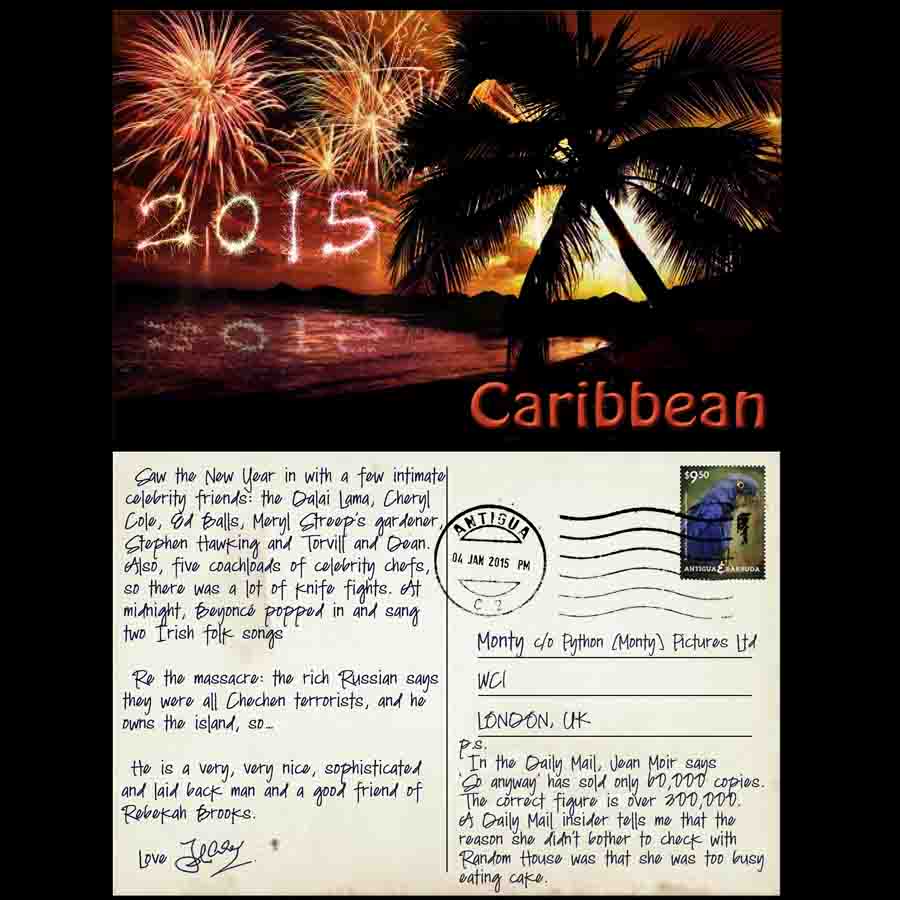 2015
Caribbean
Saw the New Year in with a few intimate
celebrity friends: the Dalai Lama, Cheryl
Cole, Ed Balls, Meryl Streep's gardener,
Stephen Hawking and Torvill and Dean.
Also, five coachloads of celebrity chefs,
so there was a lot of knife fights. At
midnight, Beyoncé popped in and sang
two Irish folk songs
Re the massacre: the rich Russian says
they were all Chechen terrorists, and he
owns the island, so...
He is a very, very nice, sophisticated
and laid back man and a good friend of
Rebekah Brooks.
Love
ANTIGUA
04 JAN 2015 PM
C 2
$9.50
ANTIGUA & BARBUDA
Monty c/o Python (Monty) Pictures Ltd
WC1
LONDON, UK
p.s.
In the Daily Mail, Jean Moir says
'So anyway' has sold only 60,000 copies.
The correct figure is over 200,000.
A Daily Mail insider tells me that the
reason she didn't bother to check with
Random House was that she was too busy
eating cake.